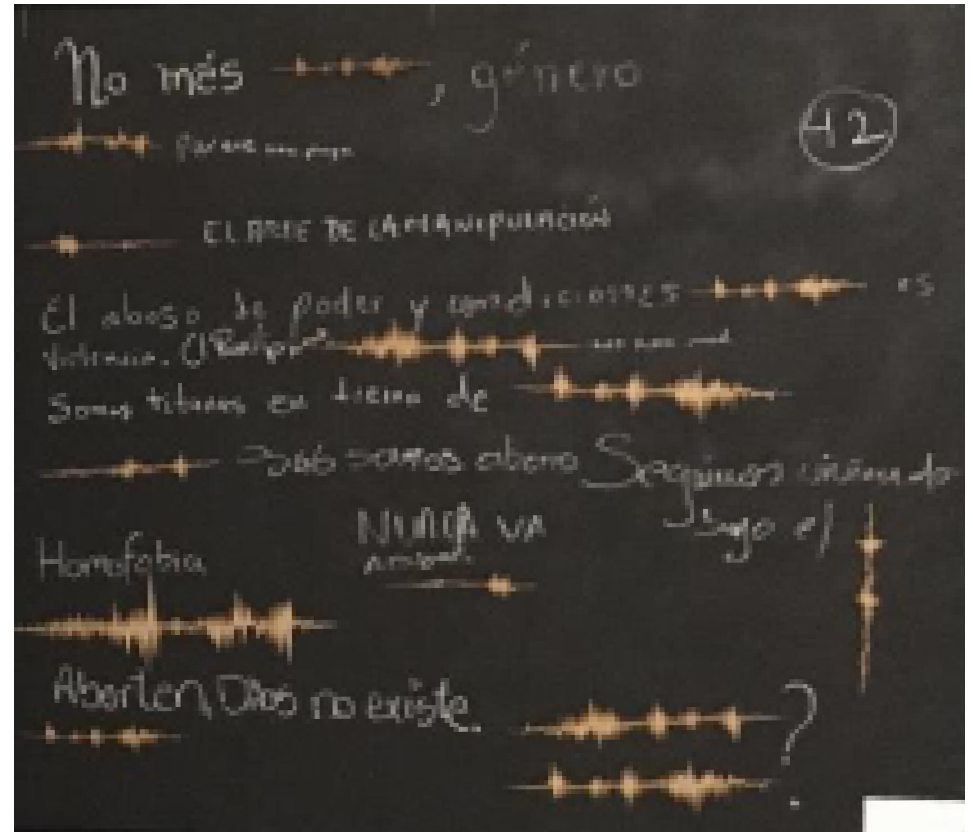 No més , género
42
Parece
EL ARTE DE LA MANIPULACIÓN
El abuso de poder y condiciones es
violencia.
Somos titanes en tierra de
somos abono Seguimos
bajo el
NUNCA VA
Homofobia
Aborten, Dios no existe
?